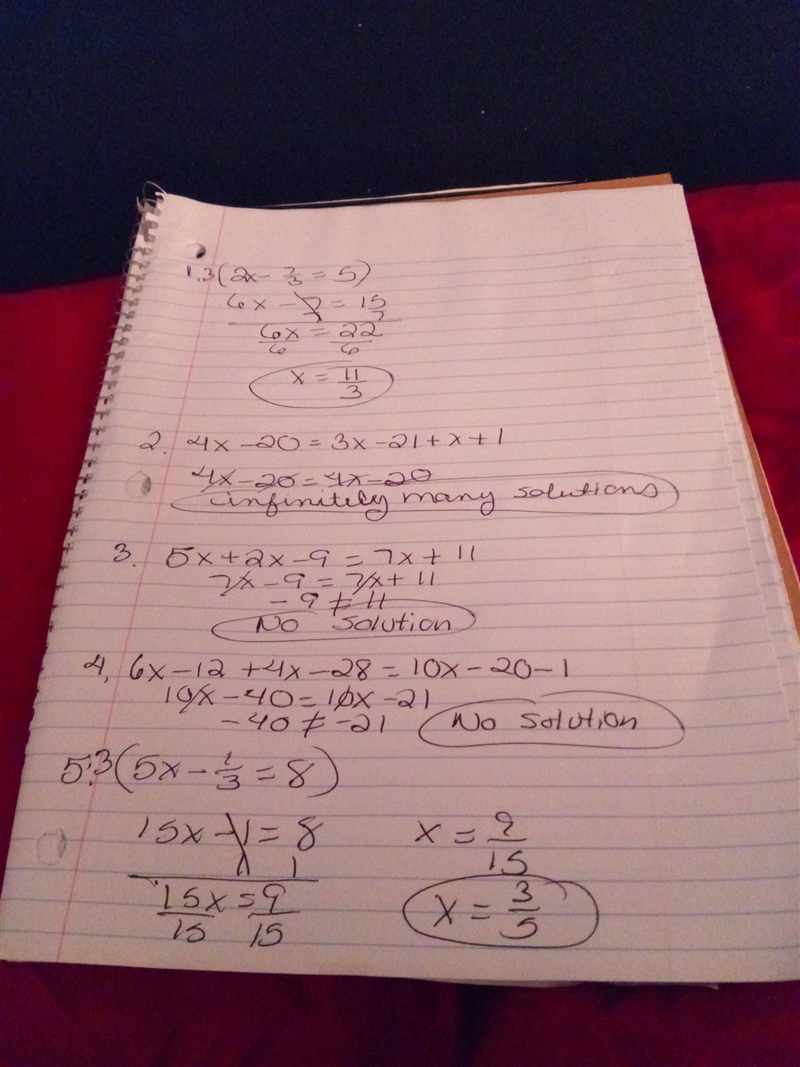 1. 3(2x - 7/3 = 5)
6x - 7 = 15
7 7
6x = 22
6 6
x = 11/3
2. 4x - 20 = 3x - 21 + x + 1
4x - 20 = 4x - 20
infinitely many solutions
3. 5x + 2x - 9 = 7x + 11
7x - 9 = 7x + 11
-9 ≠ 11
No solution
4. 6x - 12 + 4x - 28 = 10x - 20 - 1
10x - 40 = 10x - 21
-40 ≠ -21 No solution
5. 3(5x - 1/3 = 8)
15x - 1 = 8 x = 9/15
1 1
15x = 9 x = 3/5
15 15